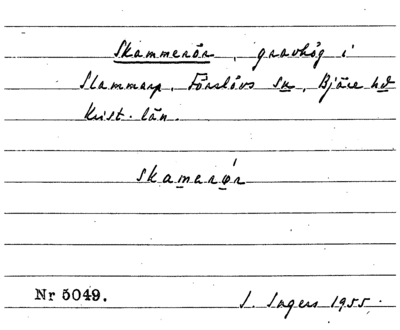 Skammerör, gravhög i
Slammarp, Förslövs sn, Bjäre hd
Krist. län.
skamerør
Nr 5049.
S. Ingers 1955.